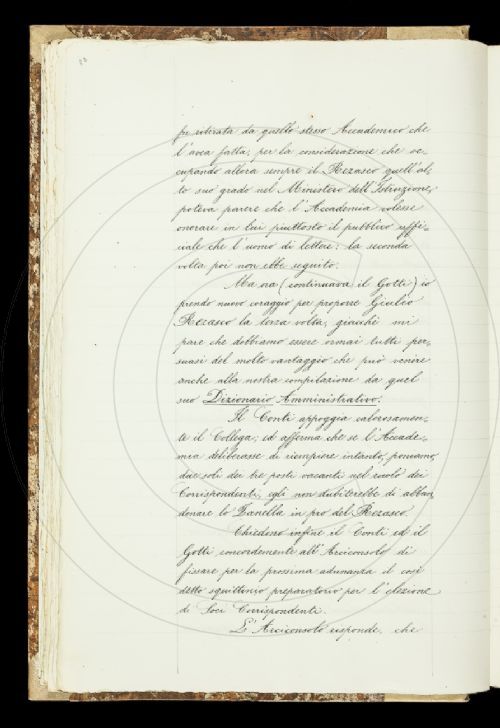 fu ritirata da quello stesso Accademico che
l'avea fatta, per la considerazione che oc-
cupando allora sempre il Rezasco quell'al-
to suo grado nel Ministero dell'Istruzione,
poteva parere che l'Accademia volesse
onorare in lui piuttosto il pubblico uffi-
ciale che l'uomo di lettere: la seconda
volta poi non ebbe seguito.
Ma ora (continuava il Gotti) io
prendo nuovo coraggio per proporre Giulio
Rezasco la terza volta, giacchè mi
pare che dobbiamo essere ormai tutti per-
suasi del molto vantaggio che può venire
anche alla nostra compilazione da quel
suo Dizionario Amministrativo.
Il Conti appoggia calorosamen-
te il Collega; ed afferma che se l'Accade-
mia deliberasse di riempiere intanto, poniamo,
due soli dei tre posti vacanti nel ruolo dei
Corrispondenti, egli non dubiterebbe di abban-
donare lo Zanella in pro del Rezasco.
Chiedono infine il Conti ed il
Gotti concordemente all'Arciconsolo di
fissare per la prossima adunanza il così
detto squittinio preparatorio per l'elezione
di Soci Corrispondenti.
L'Arciconsolo risponde, che